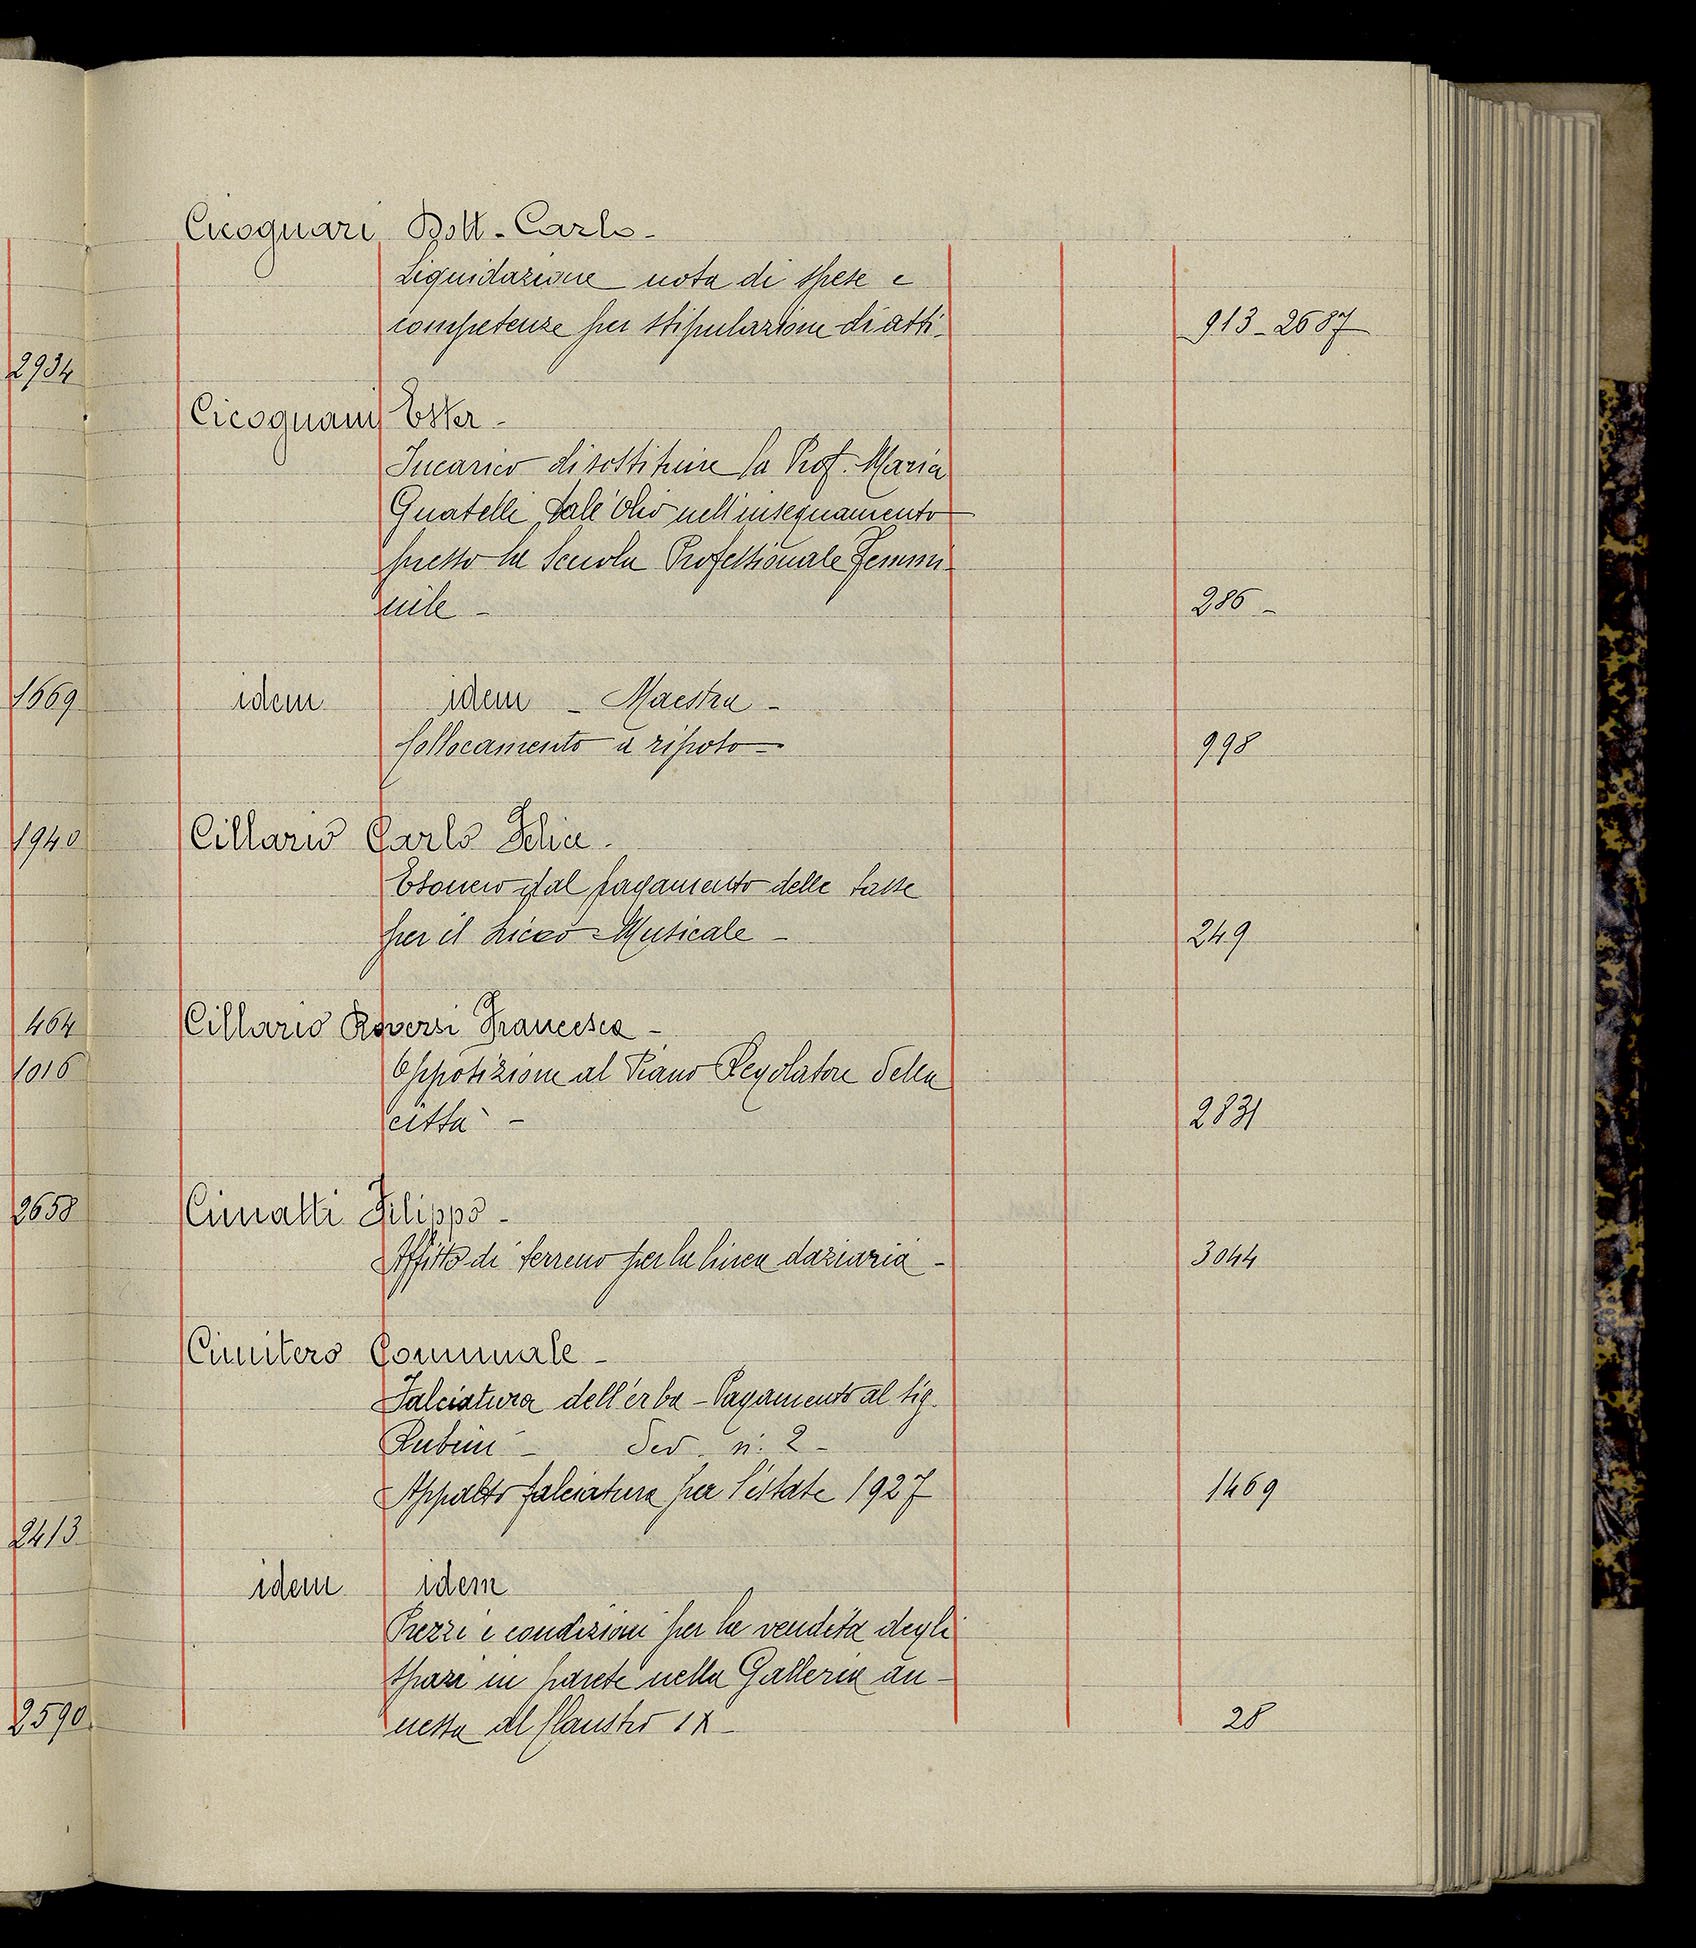 Cicognari Dott. Carlo -
Liquidazione nota di spese e
competenze per stipulazione di atti - 913 - 2687
2934
Cicognani Ester -
Incarico di sostituire la Prof. Maria
Guatelli Dall'Olio nell'insegnamento
presso la Scuola Professionale Femmi-
nile - 286 -
1669
idem idem - Maestra -
Collocamento a riposo - 998
1940
Cillario Carlo Felice -
Esonero dal pagamento delle tasse
per il Liceo Musicale - 249
464
Cillario Roversi Francesca -
1016
Opposizione al Piano Regolatore della
città - 2831
2658
Cimatti Filippo -
Affitto di terreno per la linea daziaria - 3044
Cimitero Comunale -
Falciatura dell'erba - Pagamento al sig.
Rubini - n. 2 -
Appalto falciatura per l'estate 1927 1469
2413
idem idem
Prezzi e condizioni per la vendita degli
spazi in parete nella Galleria an-
2590
nessa al Claustro IX - 28